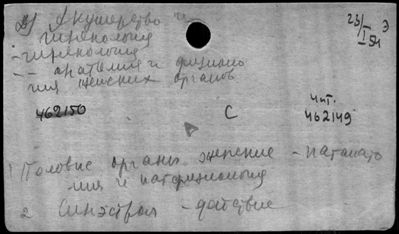 2) Акушерство и
гинекология
23/I-54 Э
- гинекология
-- анатомия и физиоло
гия женских органов
462150
С
чит.
462149
1 Половые органы женские - патанато
мия и патфизиология
2 Синэстрол - действие